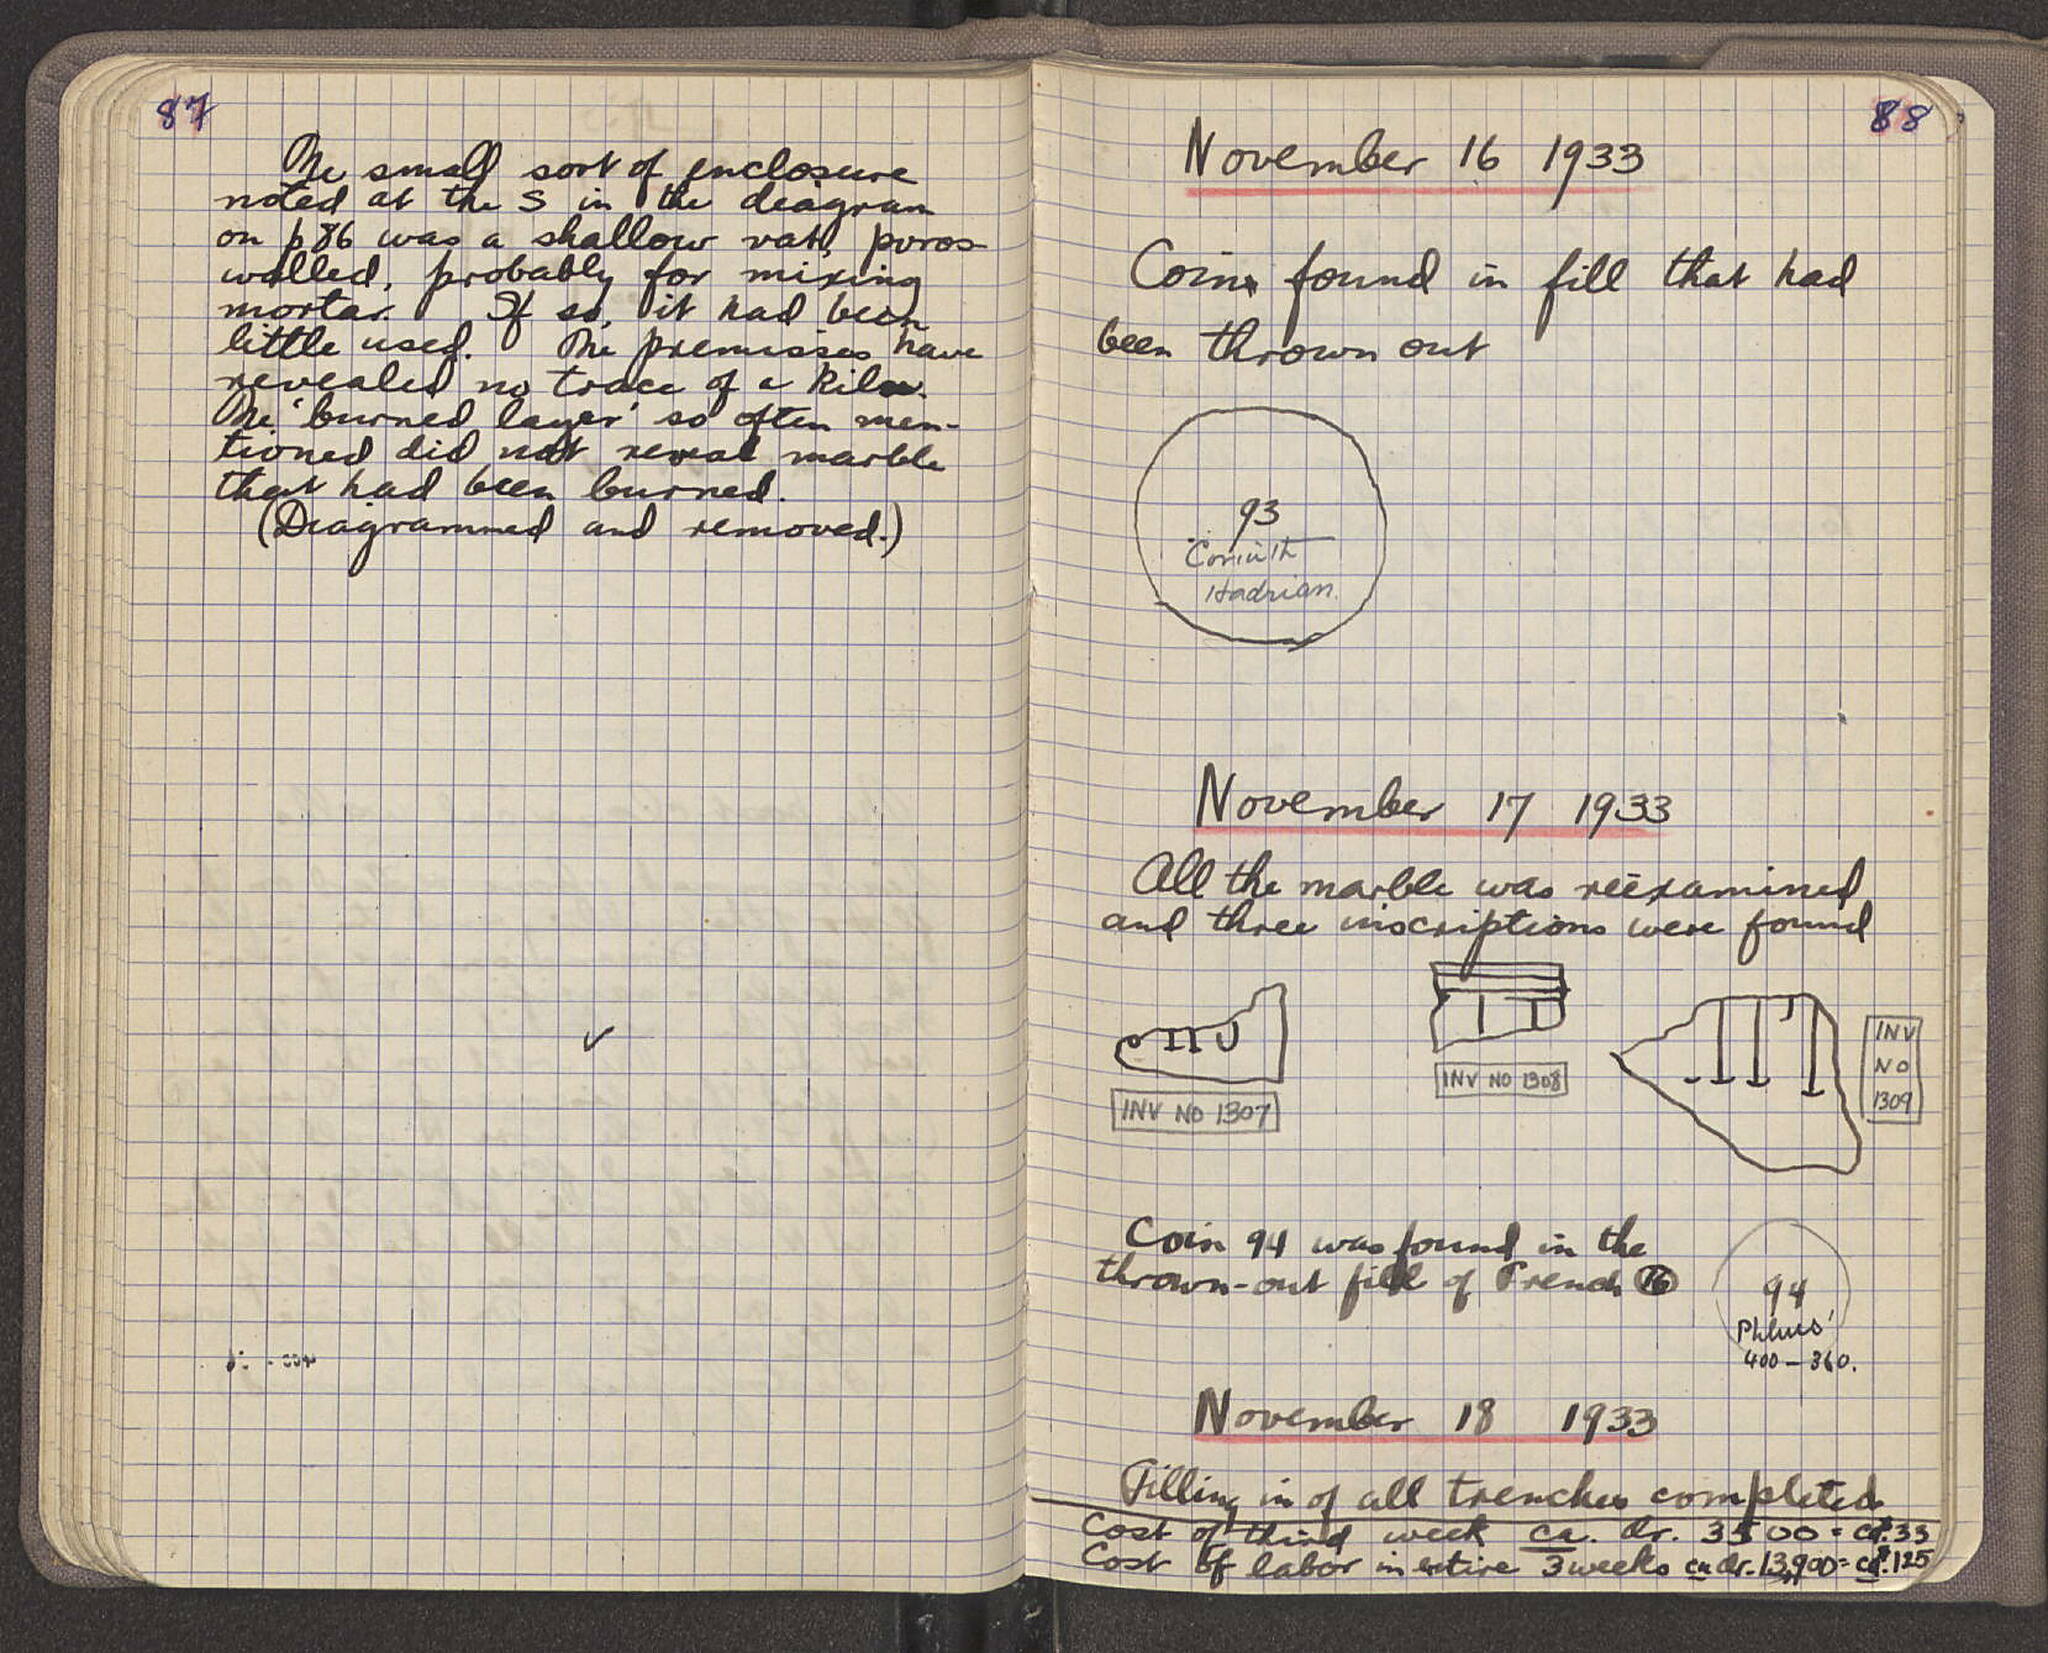 87
The small sort of enclosure
noted at the S in the diagram
on p 86 was a shallow vat, poros-
walled, probably for mixing
mortar. If so, it had been
little used. The premisses have
revealed no trace of a kiln.
The 'burned layer' so often men-
tioned did not reveal marble
that had been burned.
(Diagrammed and removed.)
88
November 16 1933
Coin found in fill that had
been thrown out
93
Corinth
Hadrian.
November 17 1933
All the marble was reëxamined
and three inscriptions were found
INV NO 1307
INV NO 1308
INV
NO
1309
Coin 94 was found in the
thrown-out fill of Trench 16
94
Phlius
400 – 360.
November 18 1933
Filling in of all trenches completed
Cost of third week ca. dr. 3500 = ca $.33
Cost of labor in entire 3 weeks ca dr. 13,900 = ca $.125